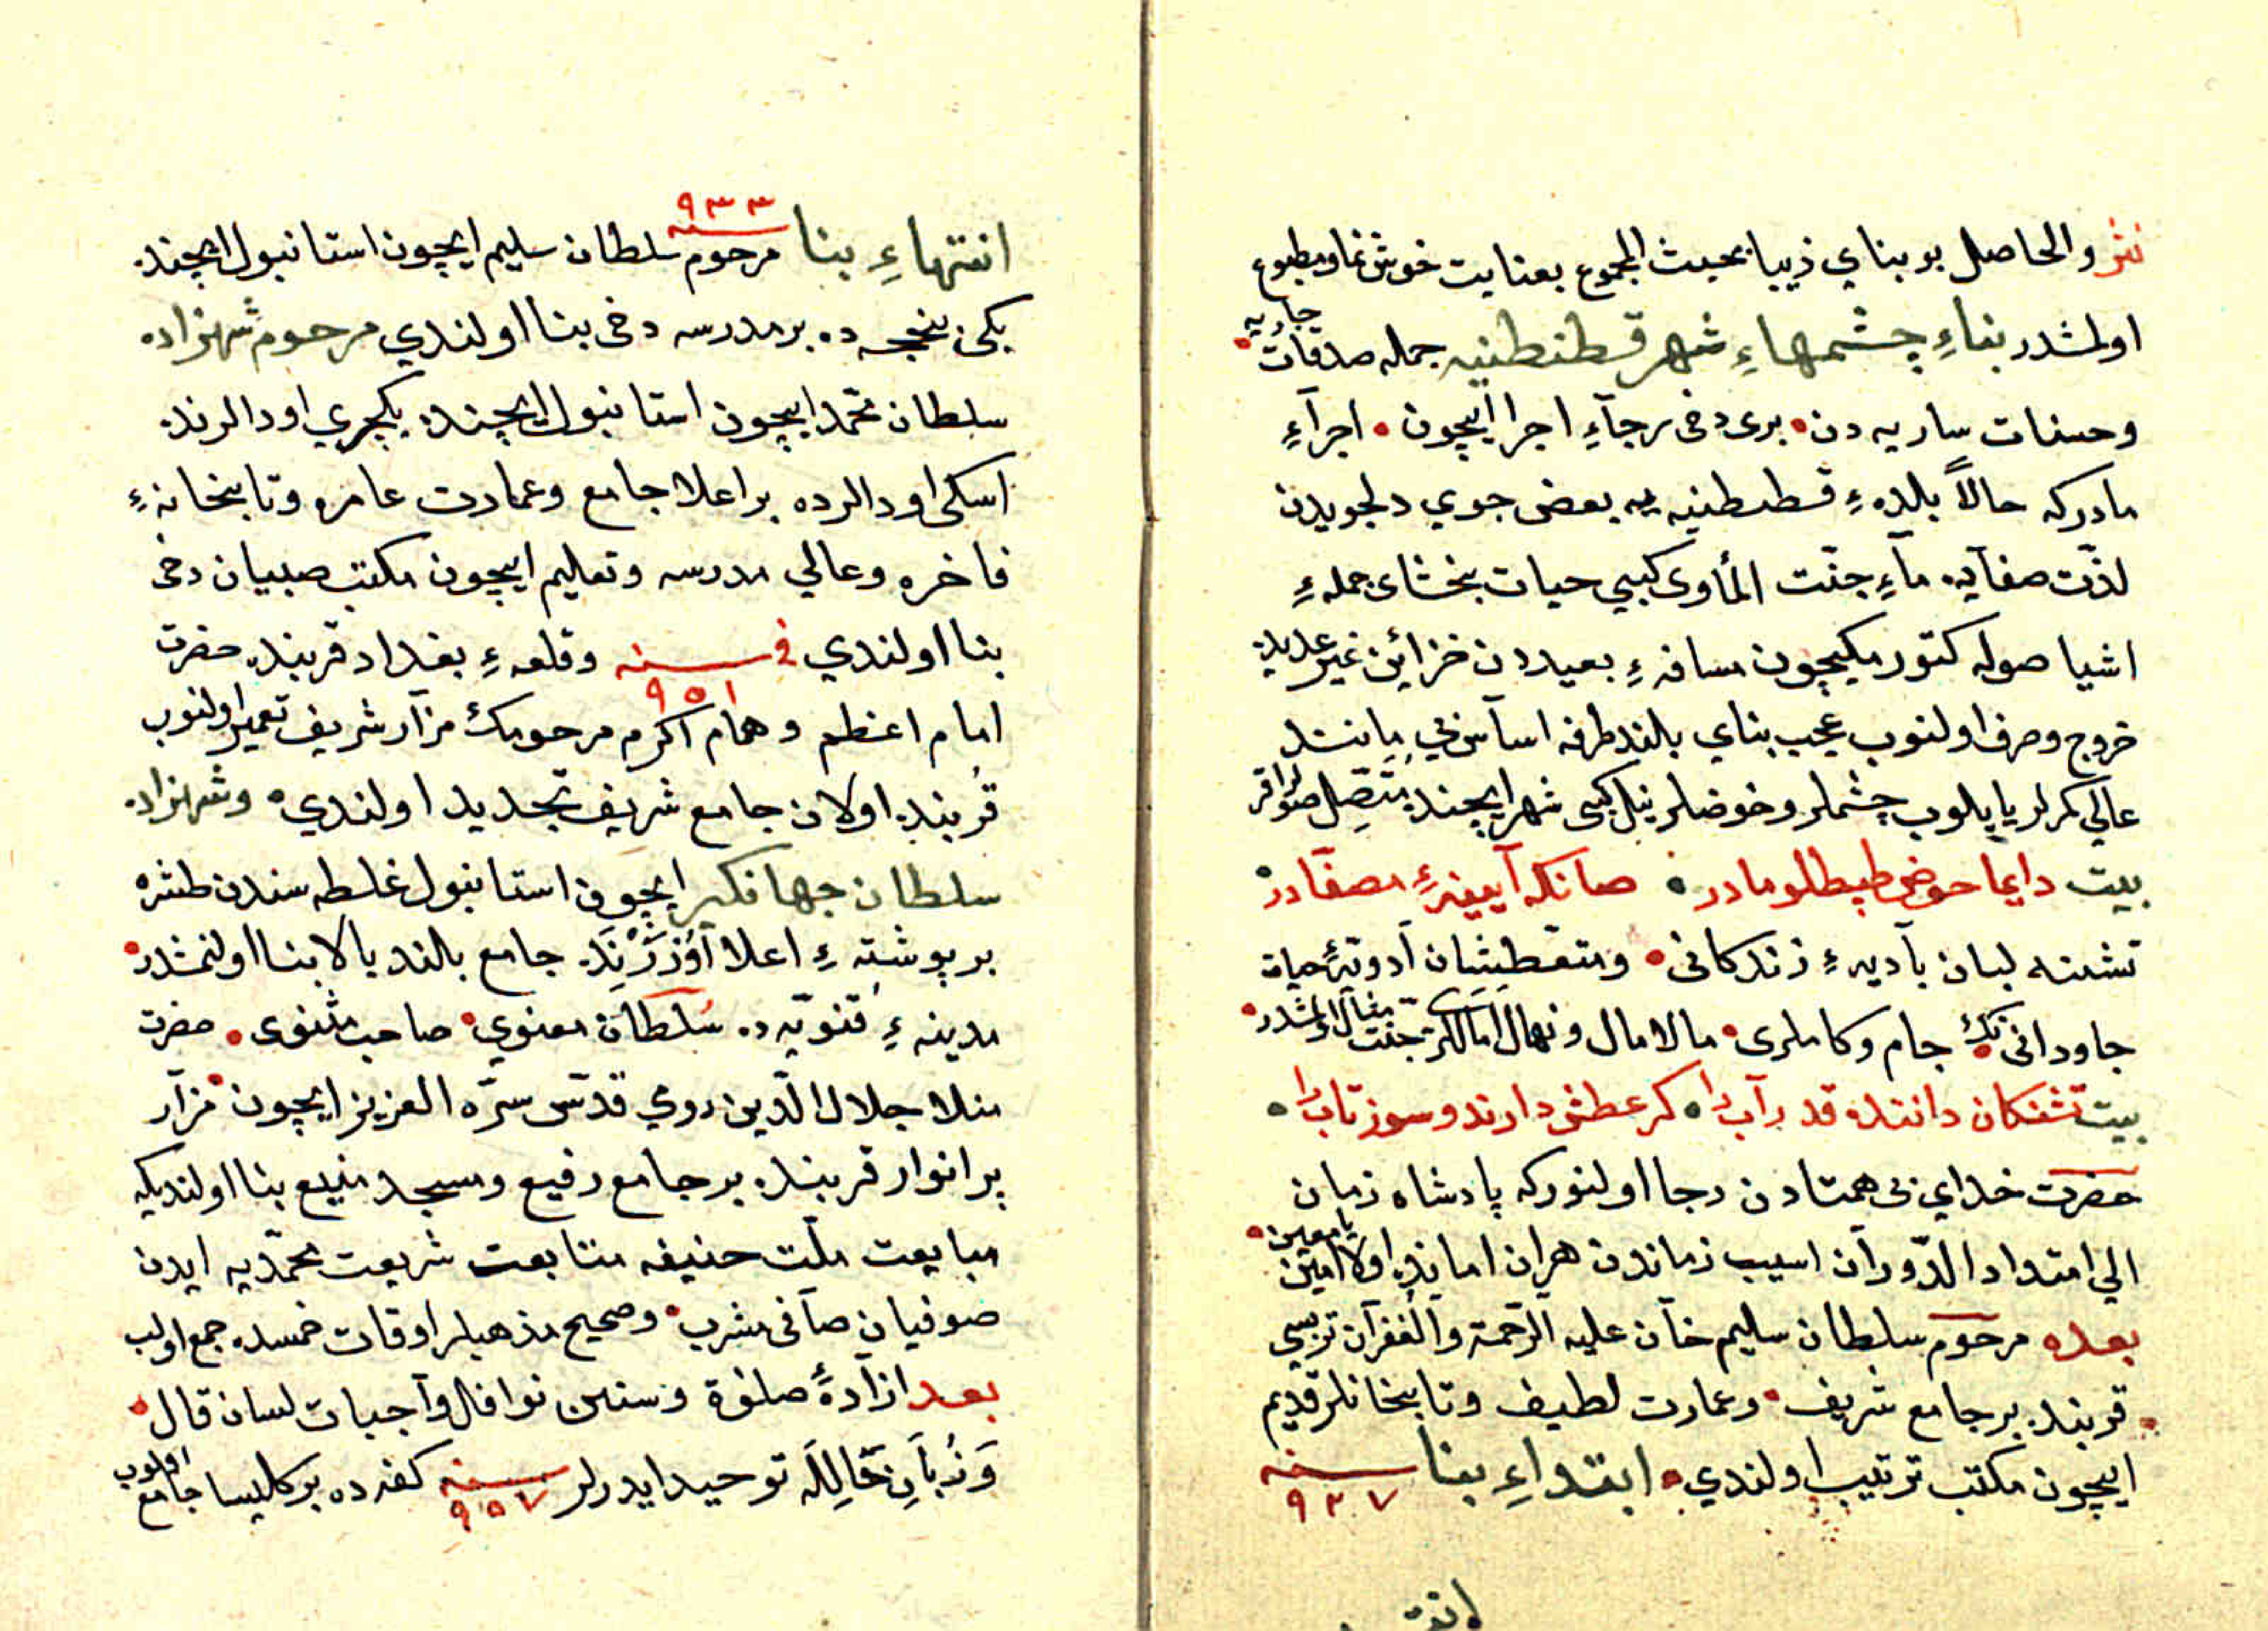 نثر والحاصل بو بناي ذيبا بحيث المجموع بعنايت خوش نما ومطبوع
اولمشدر بناءِ چشمهاءِ شهر قسطنطنيه جمله صدقات جاريه
وحسنات ساريه دن • برى دخى رجآءِ اجرا ايچون • اجرآءِ
مادركه حالاً بلدهءِ قسطنطنيه يه بعض جوي دلجويدن
لذّت صفآيه مآءِ جنّت المأوى كبي حيات بخشاى جملهءِ
اشيا صوله كتورمكيچون مسافهءِ بعيددن خزائن غير عديده
خروج وصرف اولنوب عجب بناي بلند طرفه اساس بي مانند
عالي كمرلر ياپيلوب چشملر و حوضلر نيل كبى شهر ايچنده متّصل صولر اقر
بيت دايما حوض طپطلو مادر ٥ صانكه آيينهءِ مصفّادر
تشنه لبان باديهءِ زندكانى • ومتعطّشان ادويهءِ حيات
جاودانى نك • جام وكاملرى • مالامال ونهال امللرى جنّت مثال اولمشدر •
بيت تشنكان دانند قدر آب را ٥ كر عطش دارند و سوز تاب را ٥
حضرت خداي بى همتادن رجا اولنوركه پادشاه زمان
الي امتداد الدّوران اسيب زماندن هر ان امانده اولا امين يا معين •
بعده مرحوم سلطان سليم خان عليه الرّحمة والغفران تربسى
قربنده بر جامع شريف • وعمارت لطيف وتابخانلر قديم
ايچون مكتب ترتيب اولندي • ابتداءِ بنا سنه ٩٢٧
انتـ
انتهاءِ بنا سنه ٩٣٣ مرحوم سلطان سليم ايچون استانبول ايچنده
يكى بغچه ده بر مدرسه دخى بنا اولندي مرحوم شهزاده
سلطان محمّد ايچون استانبول ايچنده يكچري اودالرنده
اسكى اودالرده بر اعلا جامع وعمارت عامره وتابخانهءِ
فاخره وعالي مدرسه وتعليم ايچون مكتب صبيان دخى
بنا اولندي في سنه ٩٥١ وقلعهءِ بغداد قربنده حضرت
امام اعظم وهمام اكرم مرحومك مزار شريف تعمير اولنوب
قربنده اولان جامع شريف تجديد اولندي ٥ وشهزاده
سلطان جهانكير ايچون استانبول غلطه سندن طشره
بر پوشتهءِ اعلا اوزرنده جامع بلند بالا بنا اولنمشدر •
مدينهءِ قنويّه ده سلطان معنوي • صاحب مثنوى • حضرت
منلا جلال الدّين رومي قدّس سرّه العزيز ايچون • مزار
پر انوار قربنده بر جامع رفيع ومسجد منيع بنا اولنديكه
مبايعت ملّت حنيفه متابعت شريعت محمّديه ايدن
صوفيان صافى مشرب • وصحيح مذهبلر اوقات خمسده جمع اولب
بعد از ادةً صلوة وسنن نوافل واجبات لسان قال •
وزبان حاليله توحيد ايدرلر سنه ٩٥٧ كفه ده بر كليسا جامع اولنوب